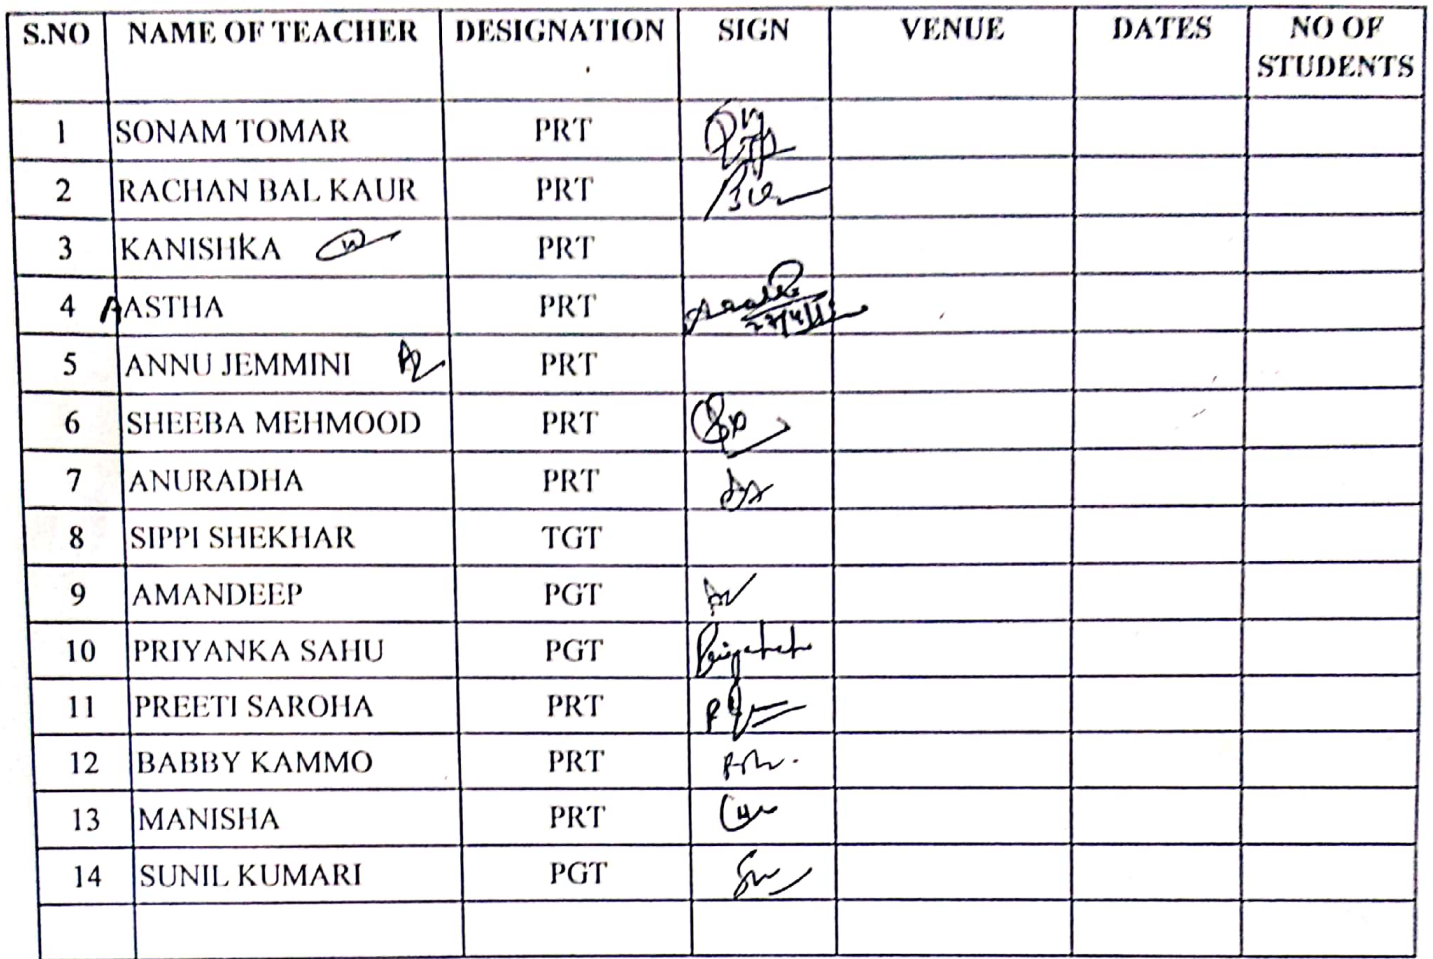 S.NO NAME OF TEACHER DESIGNATION SIGN VENUE DATES NO OF STUDENTS
1 SONAM TOMAR PRT
2 RACHAN BAL KAUR PRT
3 KANISHKA PRT
4 AASTHA PRT
5 ANNU JEMMINI PRT
6 SHEEBA MEHMOOD PRT
7 ANURADHA PRT
8 SIPPI SHEKHAR TGT
9 AMANDEEP PGT
10 PRIYANKA SAHU PGT
11 PREETI SAROHA PRT
12 BABBY KAMMO PRT
13 MANISHA PRT
14 SUNIL KUMARI PGT